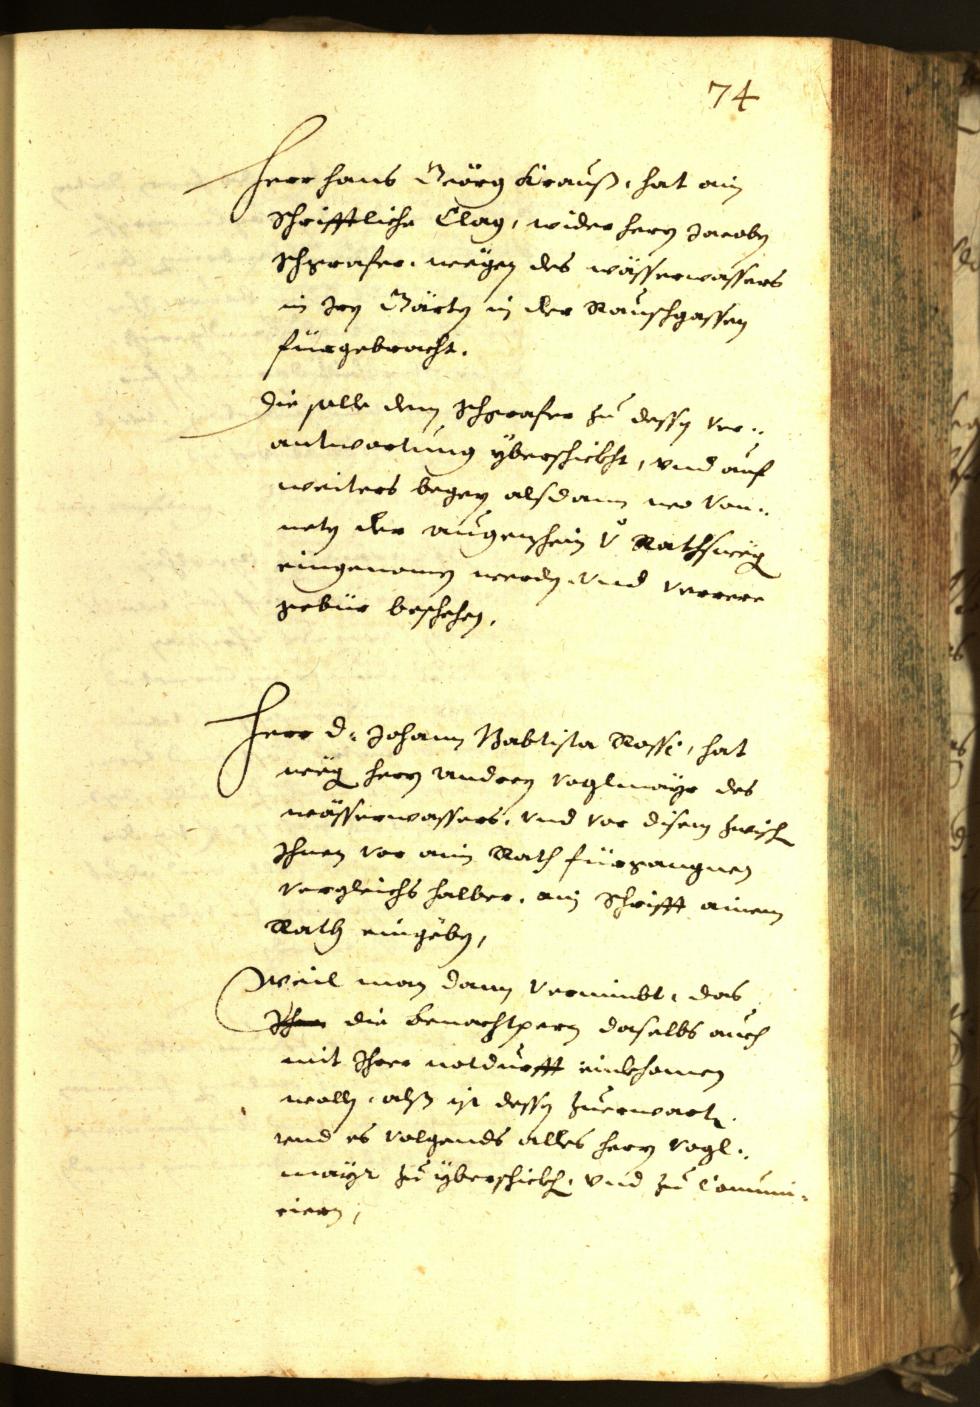 74
Herr hans Geörg Krauß, hat ain
Schrifftliche Clag, wider hern Jacoben
Schgraffer, wegen des wässerwassers
in Iren Gärten in der Rauschgassen
fürgebracht.
Die solle dem Schgraffer zu dessen ver„
antwortung yberschickht, vnd auf
weiters begern alsdann von
neten der augenschein Rathsweg
eingenomen werden, Vnd verrere
gebür beschehen.
Herr D: Johann Babtista Rossi, hat
weg: hern Andreen Voglmayr des
wässerwassers, vnd vor disem zwisch
Ihnen vor ain Rath fürgangnen
vergleichs halber, ain Schrifft ainem
Rath eingeben,
Weil man dann vernimbt, das
die benachtparn daselbs auch
mit Ihrer notdurfft einkhomen
wollen, alß ist dessen zuerwarten
vnd es volgends alles hern Vogl„
mayr zu yberschickhen, vnd zu Comuni„
ciern,